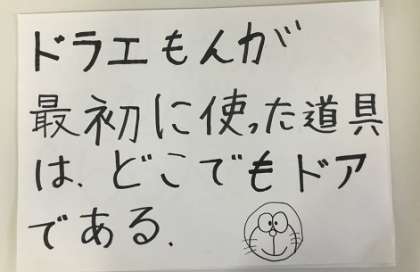 ドラエもんが
最初に使った道具
は、どこでもドア
である.